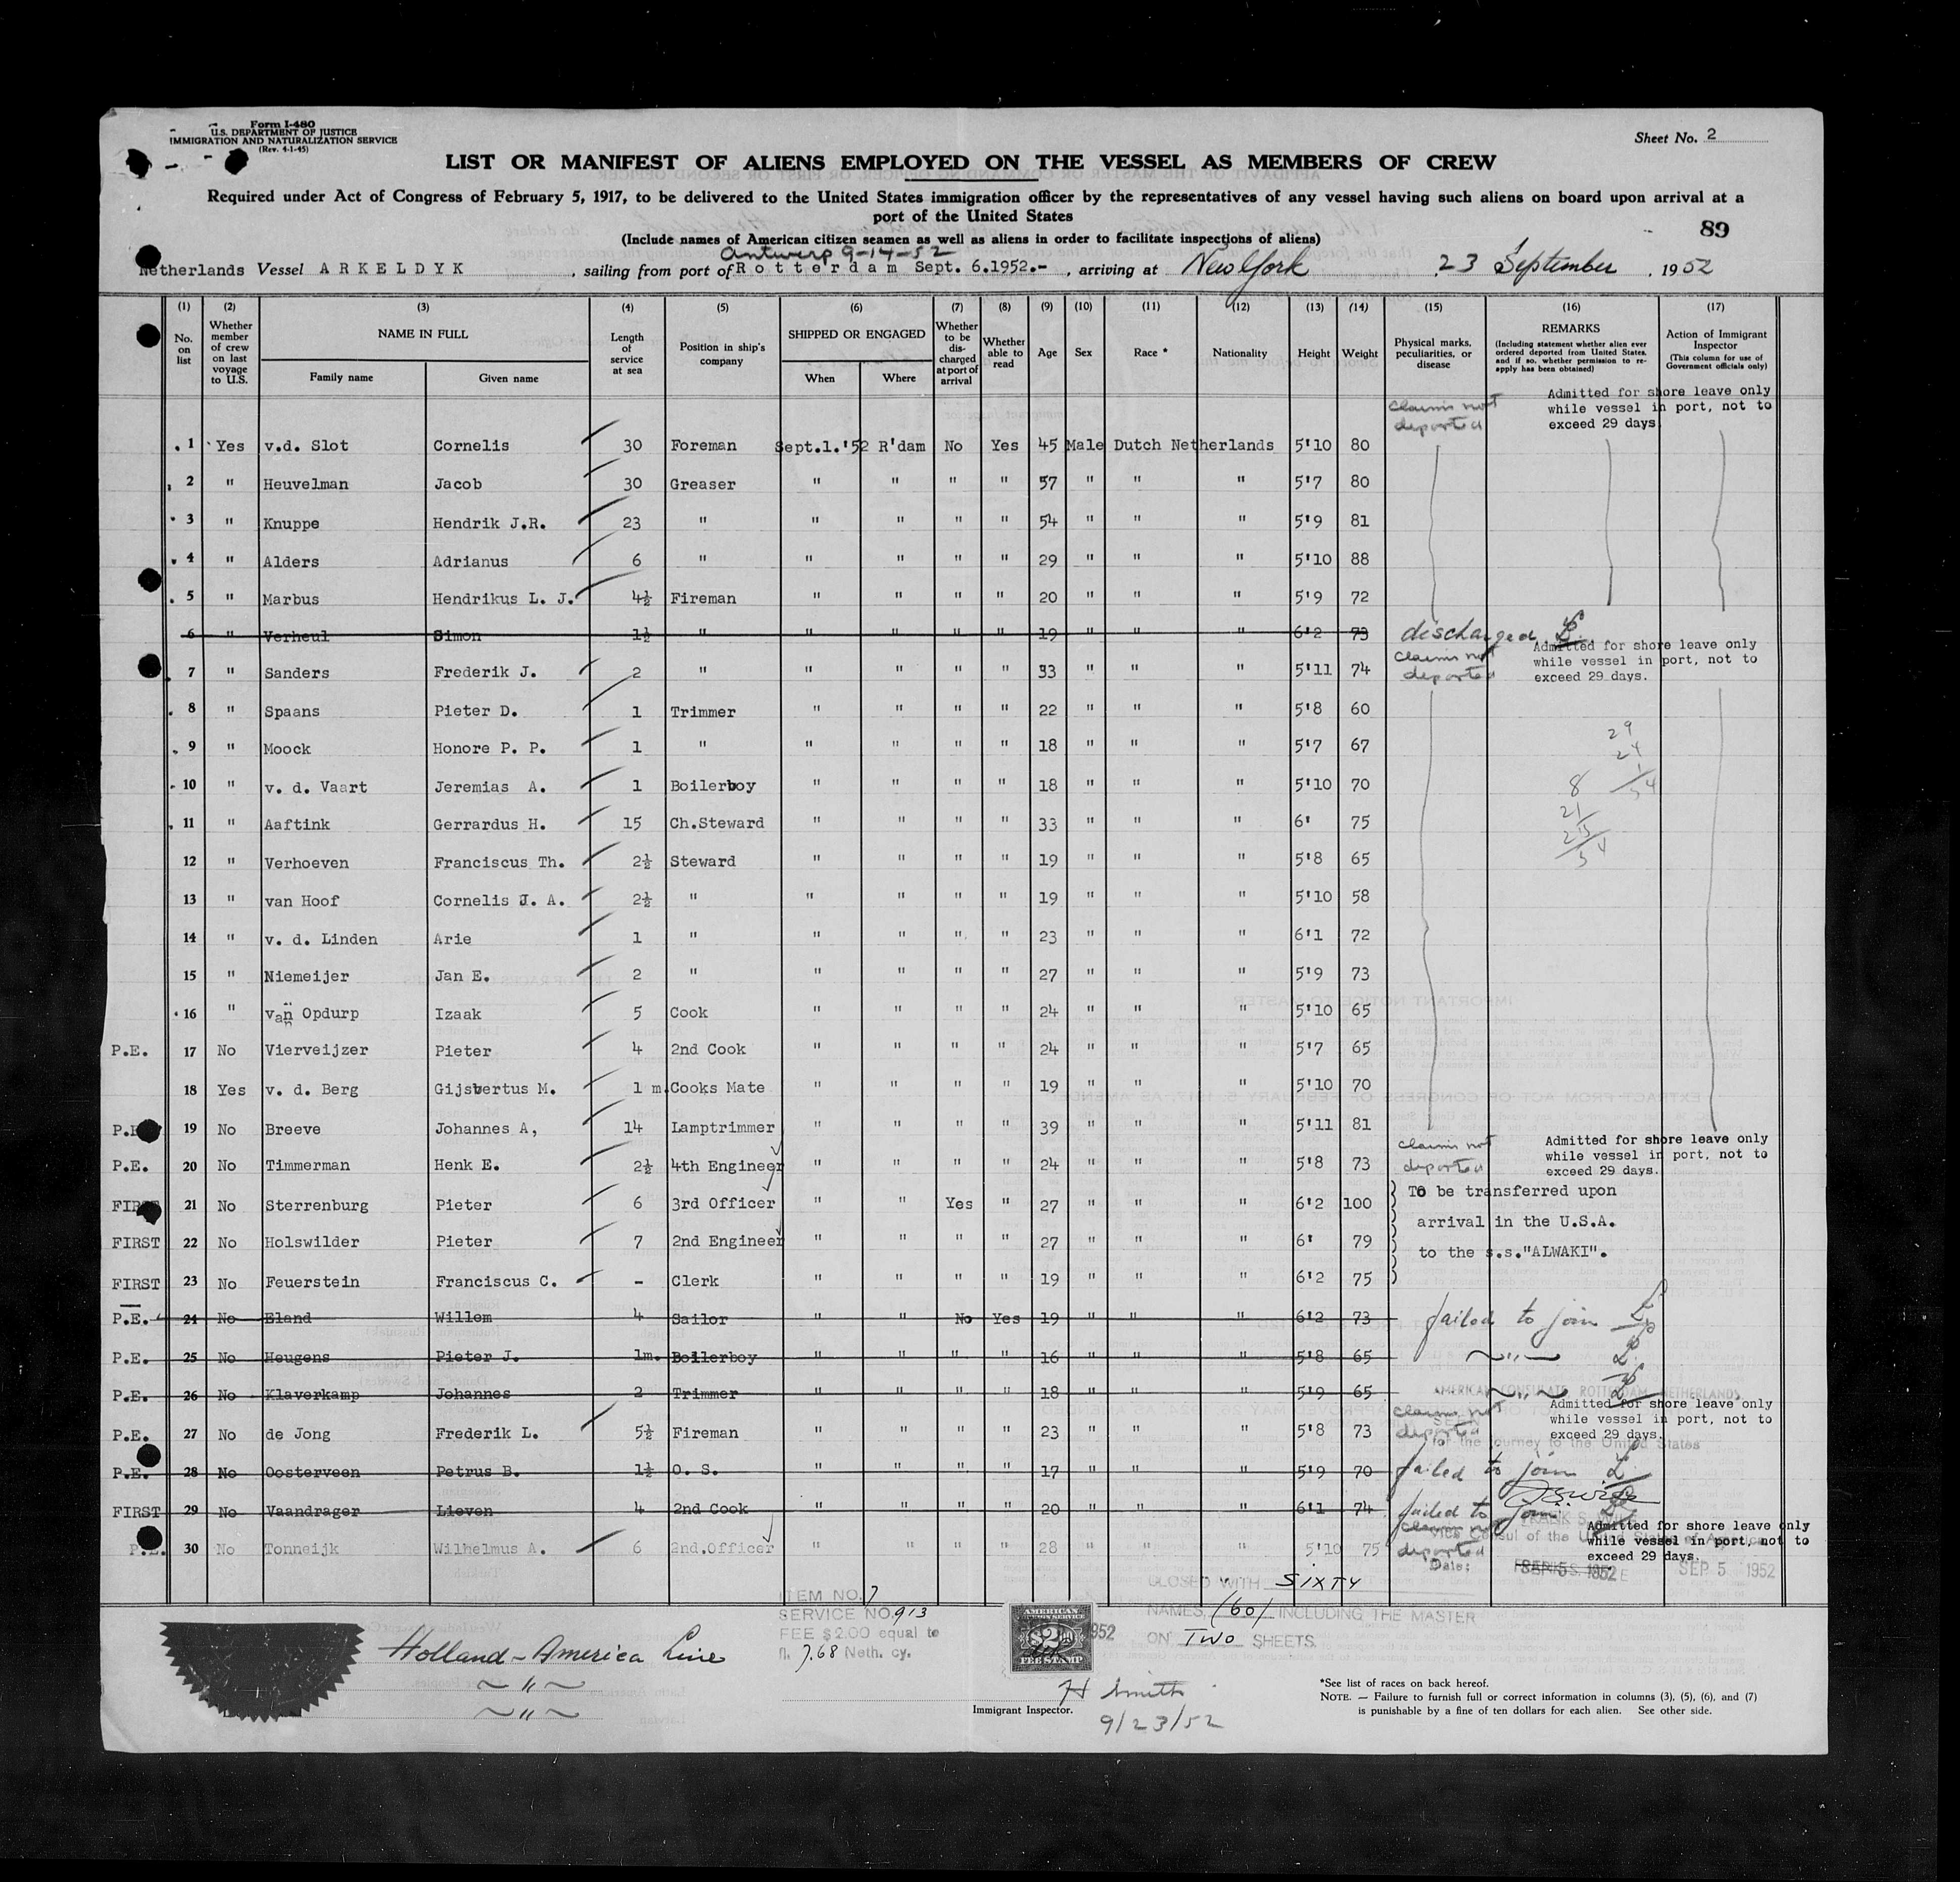 Form I-480
U.S. DEPARTMENT OF JUSTICE
IMMIGRATION AND NATURALIZATION SERVICE
(Rev. 4-1-45)
Sheet No. 2
LIST OR MANIFEST OF ALIENS EMPLOYED ON THE VESSEL AS MEMBERS OF CREW
Required under Act of Congress of February 5, 1917, to be delivered to the United States immigration officer by the representatives of any vessel having such aliens on board upon arrival at a
port of the United States
89
(Include names of American citizen seamen as well as aliens in order to facilitate inspections of aliens)
Antwerp 9-14-52
Netherlands Vessel ARKELDYK, sailing from port of Rotterdam Sept. 6.1952.-, arriving at New York 23 September, 1952
(1) No. on list
(2) Whether member of crew on last voyage to U.S.
(3) NAME IN FULL
Family name Given name
(4) Length of service at sea
(5) Position in ship's company
(6) SHIPPED OR ENGAGED
When Where
(7) Whether to be discharged at port of arrival
(8) Whether able to read
(9) Age
(10) Sex
(11) Race *
(12) Nationality
(13) Height
(14) Weight
(15) Physical marks, peculiarities, or disease
(16) REMARKS
(Including statement whether alien ever ordered deported from United States, and if so, whether permission to reapply has been obtained)
(17) Action of Immigrant Inspector
(This column for use of Government officials only)
claims not deported
Admitted for shore leave only
while vessel in port, not to
exceed 29 days
1 Yes v.d. Slot Cornelis 30 Foreman Sept.1.'52 R'dam No Yes 45 Male Dutch Netherlands 5'10 80
2 " Heuvelman Jacob 30 Greaser " " " " 57 " " " 5'7 80
3 " Knuppe Hendrik J.R. 23 " " " " " 54 " " " 5'9 81
4 " Alders Adrianus 6 " " " " " 29 " " " 5'10 88
5 " Marbus Hendrikus L. J. 4½ Fireman " " " " 20 " " " 5'9 72
6 " Verheul Simon 1½ " " " " " 19 " " " 6'2 73 discharged
claims not deported
Admitted for shore leave only
while vessel in port, not to
exceed 29 days.
7 " Sanders Frederik J. 2 " " " " " 33 " " " 5'11 74
8 " Spaans Pieter D. 1 Trimmer " " " " 22 " " " 5'8 60
9 " Moock Honore P. P. 1 " " " " " 18 " " " 5'7 67
10 " v. d. Vaart Jeremias A. 1 Boilerboy " " " " 18 " " " 5'10 70
11 " Aaftink Gerrardus H. 15 Ch.Steward " " " " 33 " " " 6' 75
12 " Verhoeven Franciscus Th. 2½ Steward " " " " 19 " " " 5'8 65
13 " van Hoof Cornelis J. A. 2½ " " " " " 19 " " " 5'10 58
14 " v. d. Linden Arie 1 " " " " " 23 " " " 6'1 72
15 " Niemeijer Jan E. 2 " " " " " 27 " " " 5'9 73
16 " van Opdurp Izaak 5 Cook " " " " 24 " " " 5'10 65
P.E. 17 No Vierveijzer Pieter 4 2nd Cook " " " " 24 " " " 5'7 65
18 Yes v. d. Berg Gijsbertus M. 1 m. Cooks Mate " " " " 19 " " " 5'10 70
19 No Breeve Johannes A, 14 Lamptrimmer " " " " 39 " " " 5'11 81
claims not deported
Admitted for shore leave only
while vessel in port, not to
exceed 29 days.
P.E. 20 No Timmerman Henk E. 2½ 4th Engineer " " " " 24 " " " 5'8 73
FIRST 21 No Sterrenburg Pieter 6 3rd Officer " " Yes " 27 " " " 6'2 100
To be transferred upon
arrival in the U.S.A.
to the s.s."ALWAKI".
FIRST 22 No Holswilder Pieter 7 2nd Engineer " " " " 27 " " " 6' 79
FIRST 23 No Feuerstein Franciscus C. - Clerk " " " " 19 " " " 6'2 75
P.E. 24 No Eland Willem 4 Sailor " " No Yes 19 " " " 6'2 73 failed to join
P.E. 25 No Heugens Pieter J. 1m. Boilerboy " " " " 16 " " " 5'8 65 "
P.E. 26 No Klaverkamp Johannes 2 Trimmer " " " " 18 " " " 5'9 65 "
AMERICAN CONSULATE, ROTTERDAM, NETHERLANDS
claims not deported
Admitted for shore leave only
while vessel in port, not to
exceed 29 days.
P.E. 27 No de Jong Frederik L. 5½ Fireman " " " " 23 " " " 5'8 73
for the journey to the United States
P.E. 28 No Oosterveen Petrus B. 1½ O. S. " " " " 17 " " " 5'9 70 failed to join
FIRST 29 No Vaandrager Lieven 4 2nd Cook " " " " 20 " " " 6'1 74 failed to join
claims not deported
Admitted for shore leave only
while vessel in port, not to
exceed 29 days.
P.E. 30 No Tonneijk Wilhelmus A. 6 2nd.Officer " " " " 28 " " " 5'10 75
Vice Consul of the United States of America
Date: SEP 5 1952 SEP 5 1952
ITEM NO. 7
SERVICE NO. 913
FEE $2.00 equal to
fl. 7.68 Neth. cy.
AMERICAN
$2.00
FEE STAMP
1952
CLOSED WITH SIXTY
NAMES, (60) INCLUDING THE MASTER
ON TWO SHEETS.
Holland-America Line
"
"
H Smith
Immigrant Inspector.
9/23/52
*See list of races on back hereof.
NOTE. — Failure to furnish full or correct information in columns (3), (5), (6), and (7)
is punishable by a fine of ten dollars for each alien. See other side.